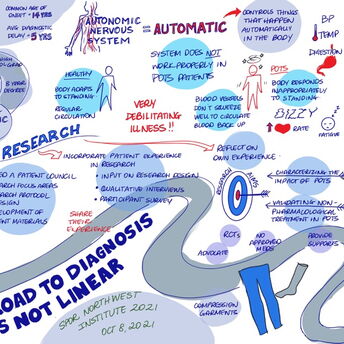 COMMON AGE OF
ONSET = 14 YRS
AVG DIAGNOSTIC
DELAY = 5 YRS
AUTONOMIC
NERVOUS
SYSTEM
AUTOMATIC
CONTROLS THINGS
THAT HAPPEN
AUTOMATICALLY
IN THE BODY
BP
TEMP
DIGESTION
SYSTEM DOES NOT
WORK PROPERLY IN
POTS PATIENTS
HEALTHY
BODY ADAPTS
TO STANDING
REGULAR
CIRCULATION
VERY
DEBILITATING
ILLNESS!!
BLOOD VESSELS
DON'T SQUEEZE
WELL TO CIRCULATE
BLOOD BACK UP
POTS
BODY RESPONDS
INAPPROPRIATELY
TO STANDING
DIZZY
RATE
FATIGUE
RESEARCH
INCORPORATE PATIENT EXPERIENCE
IN RESEARCH
• INPUT ON RESEARCH DESIGN
• QUALITATIVE INTERVIEWS
• PARTICIPANT SURVEY
A PATIENT COUNCIL
FOCUS AREAS
SHARE
THEIR
EXPERIENCE
REFLECT ON
OWN EXPERIENCE
RESEARCH AIMS
CHARACTERIZING THE
IMPACT OF POTS
VALIDATING NON-
PHARMALOGICAL
TREATMENT IN POTS
RCTs
ADVOCATE
NO
APPROVED
MEDS
PROVIDE
SUPPORTS
COMPRESSION
GARMENTS
ROAD TO DIAGNOSIS
IS NOT LINEAR
SPOR NORTHWEST
INSTITUTE 2021
OCT 8, 2021